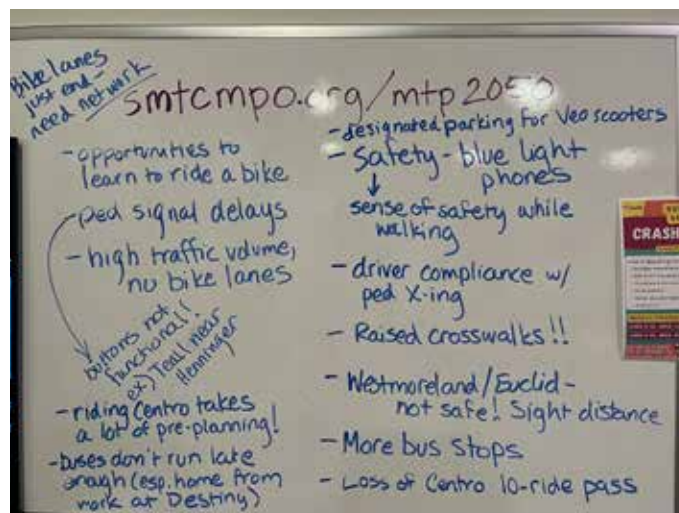 Bike lanes
just end-
need network
smtcmpo.org/mtp2050
- opportunities to
learn to ride a bike
ped signal delays
- high traffic volume,
no bike lanes
buttons not
functional!
ex) Teall near
Henninger
- riding Centro takes
a lot of pre-planning!
- buses don't run late
enough (esp. home from
work at Destiny)
- designated parking for Veo scooters
- Safety - blue light
phones
sense of safety while
walking
- driver compliance w/
ped X-ing
- Raised crosswalks!!
- Westmoreland/Euclid -
not safe! Sight distance
- More bus stops
- Loss of Centro 10-ride pass
CRASH